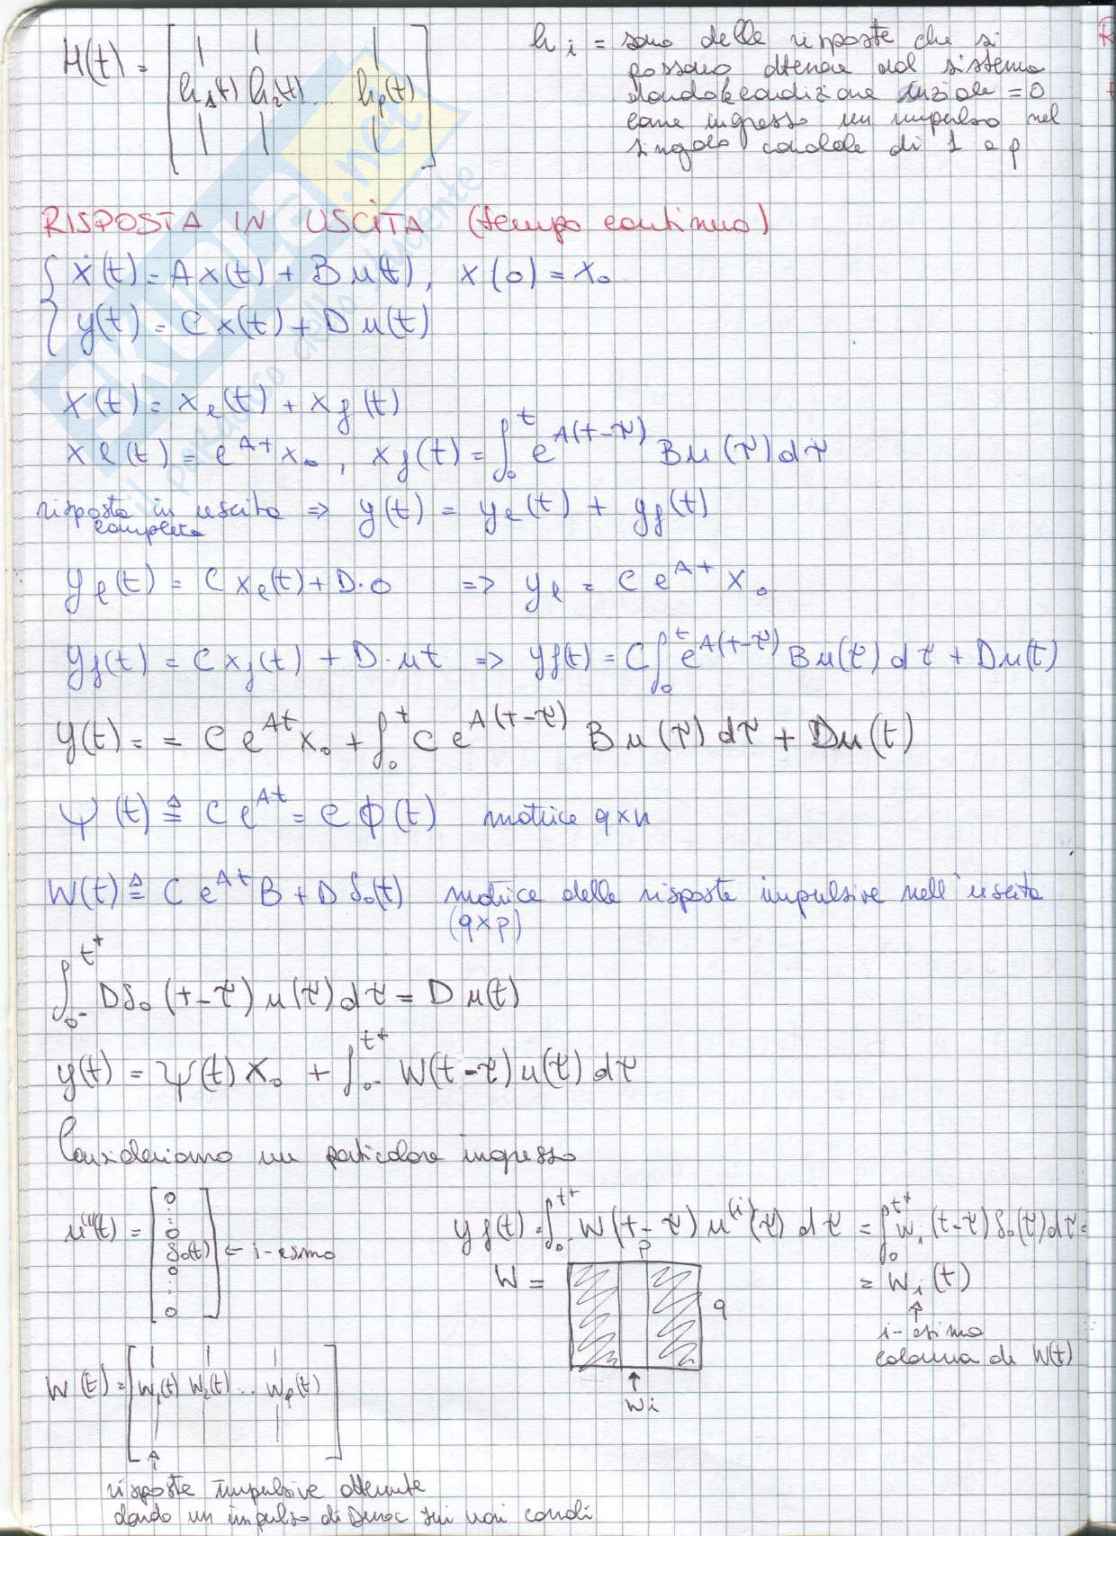 H(t) = [h₁(t) h₂(t) ... hₚ(t)]
hᵢ = sono delle risposte che si
possono ottenere dal sistema
dando la condizione iniziale = 0
come ingresso un impulso nel
singolo canale di 1 a p
RISPOSTA IN USCITA (tempo continuo)
{ ẋ(t) = Ax(t) + Bu(t), x(0) = x₀
{ y(t) = Cx(t) + Du(t)
x(t) = xₑ(t) + x_f(t)
xℓ(t) = e^{At} x₀, x_f(t) = ∫₀^t e^{A(t-τ)} Bu(τ)dτ
risposta in uscita ⇒ y(t) = yₑ(t) + y_f(t)
completa
yℓ(t) = C xₑ(t) + D·0 ⇒ yℓ = C e^{At} x₀
y_f(t) = C x_f(t) + D·ut ⇒ y_f(t) = C∫₀^t e^{A(t-τ)} Bu(τ) dτ + Du(t)
y(t) = = C e^{At} x₀ + ∫₀^t C e^{A(t-τ)} Bu(τ) dτ + Du(t)
ψ(t) ≜ C e^{At} = C ϕ(t) matrice q×n
W(t) ≜ C e^{At} B + D δ₀(t) matrice delle risposte impulsive nell'uscita
(q×p)
∫_{0⁻}^{t⁺} Dδ₀(t-τ) u(τ) dτ = D u(t)
y(t) = ψ(t) x₀ + ∫_{0⁻}^{t⁺} W(t-τ) u(τ) dτ
Consideriamo un particolare ingresso
u⁽ⁱ⁾(t) = [0 ... 0 δ₀(t) 0 ... 0] ← i-esimo
y_f(t) = ∫_{0⁻}^{t⁺} W(t-τ) u⁽ⁱ⁾(τ) dτ = ∫_{0}^{t⁺} wᵢ(t-τ) δ₀(τ) dτ =
= wᵢ(t)
↑
i-esima
colonna di W(t)
p
W =
q
↑
wi
W(t) = [w₁(t) w₂(t) ... wₚ(t)]
risposte impulsive ottenute
dando un impulso di Dirac sui vari canali
SKUOLA.net